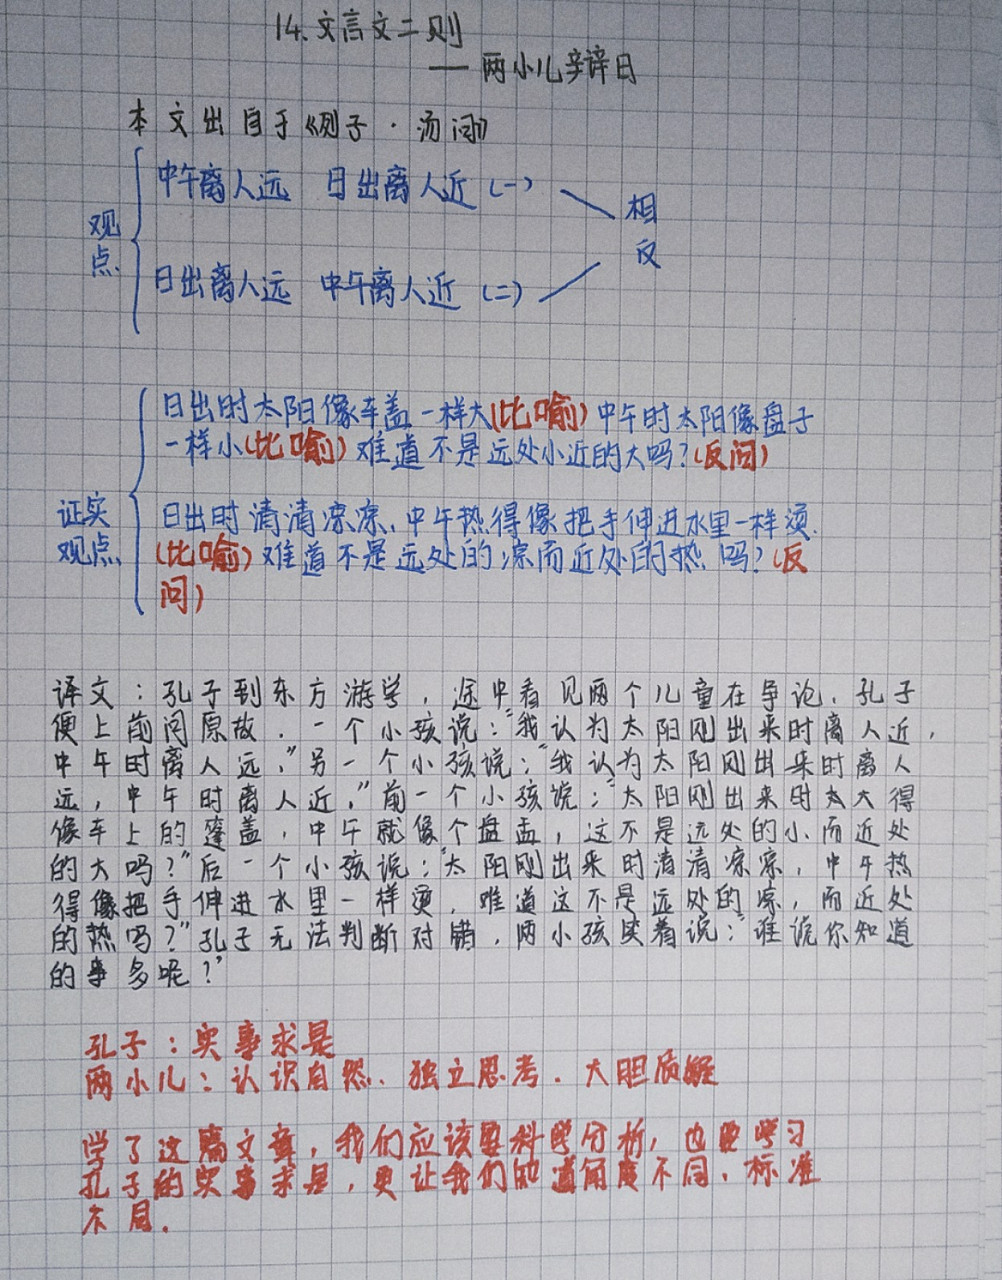 14.文言文二则
——两小儿辩日
本文出自于《列子·汤问》
中午离人远 日出离人近(一)
相
反
观
点.
日出离人远 中午离人近(二)
日出时太阳像车盖一样大(比喻)中午时太阳像盘子
一样小(比喻)难道不是远处小近的大吗?(反问)
证实
观点
日出时清清凉凉.中午热得像把手伸进水里一样烫.
(比喻)难道不是远处的凉而近处的热吗?(反
问)
译文:孔子到东方游学,途中看见两个儿童在争论.孔子
便上前问原故.一个小孩说:"我认为太阳刚出来时离人近,
中午时离人远."另一个小孩说:"我认为太阳刚出来时离人
远,中午时离人近."前一个小孩说:"太阳刚出来时太大得
像车上的篷盖,中午就像个盘盂,这不是远处的小而近处
的大吗?"后一个小孩说:"太阳刚出来时清清凉凉,中午热
得像把手伸进水里一样烫,难道这不是远处的凉,而近处
的热吗?"孔子无法判断对错,两小孩笑着说:"谁说你知道
的事多呢?"
孔子:实事求是
两小儿:认识自然.独立思考.大胆质疑
学了这篇文章,我们应该要科学分析,也要学习
孔子的实事求是,更让我们知道角度不同,标准
不同.